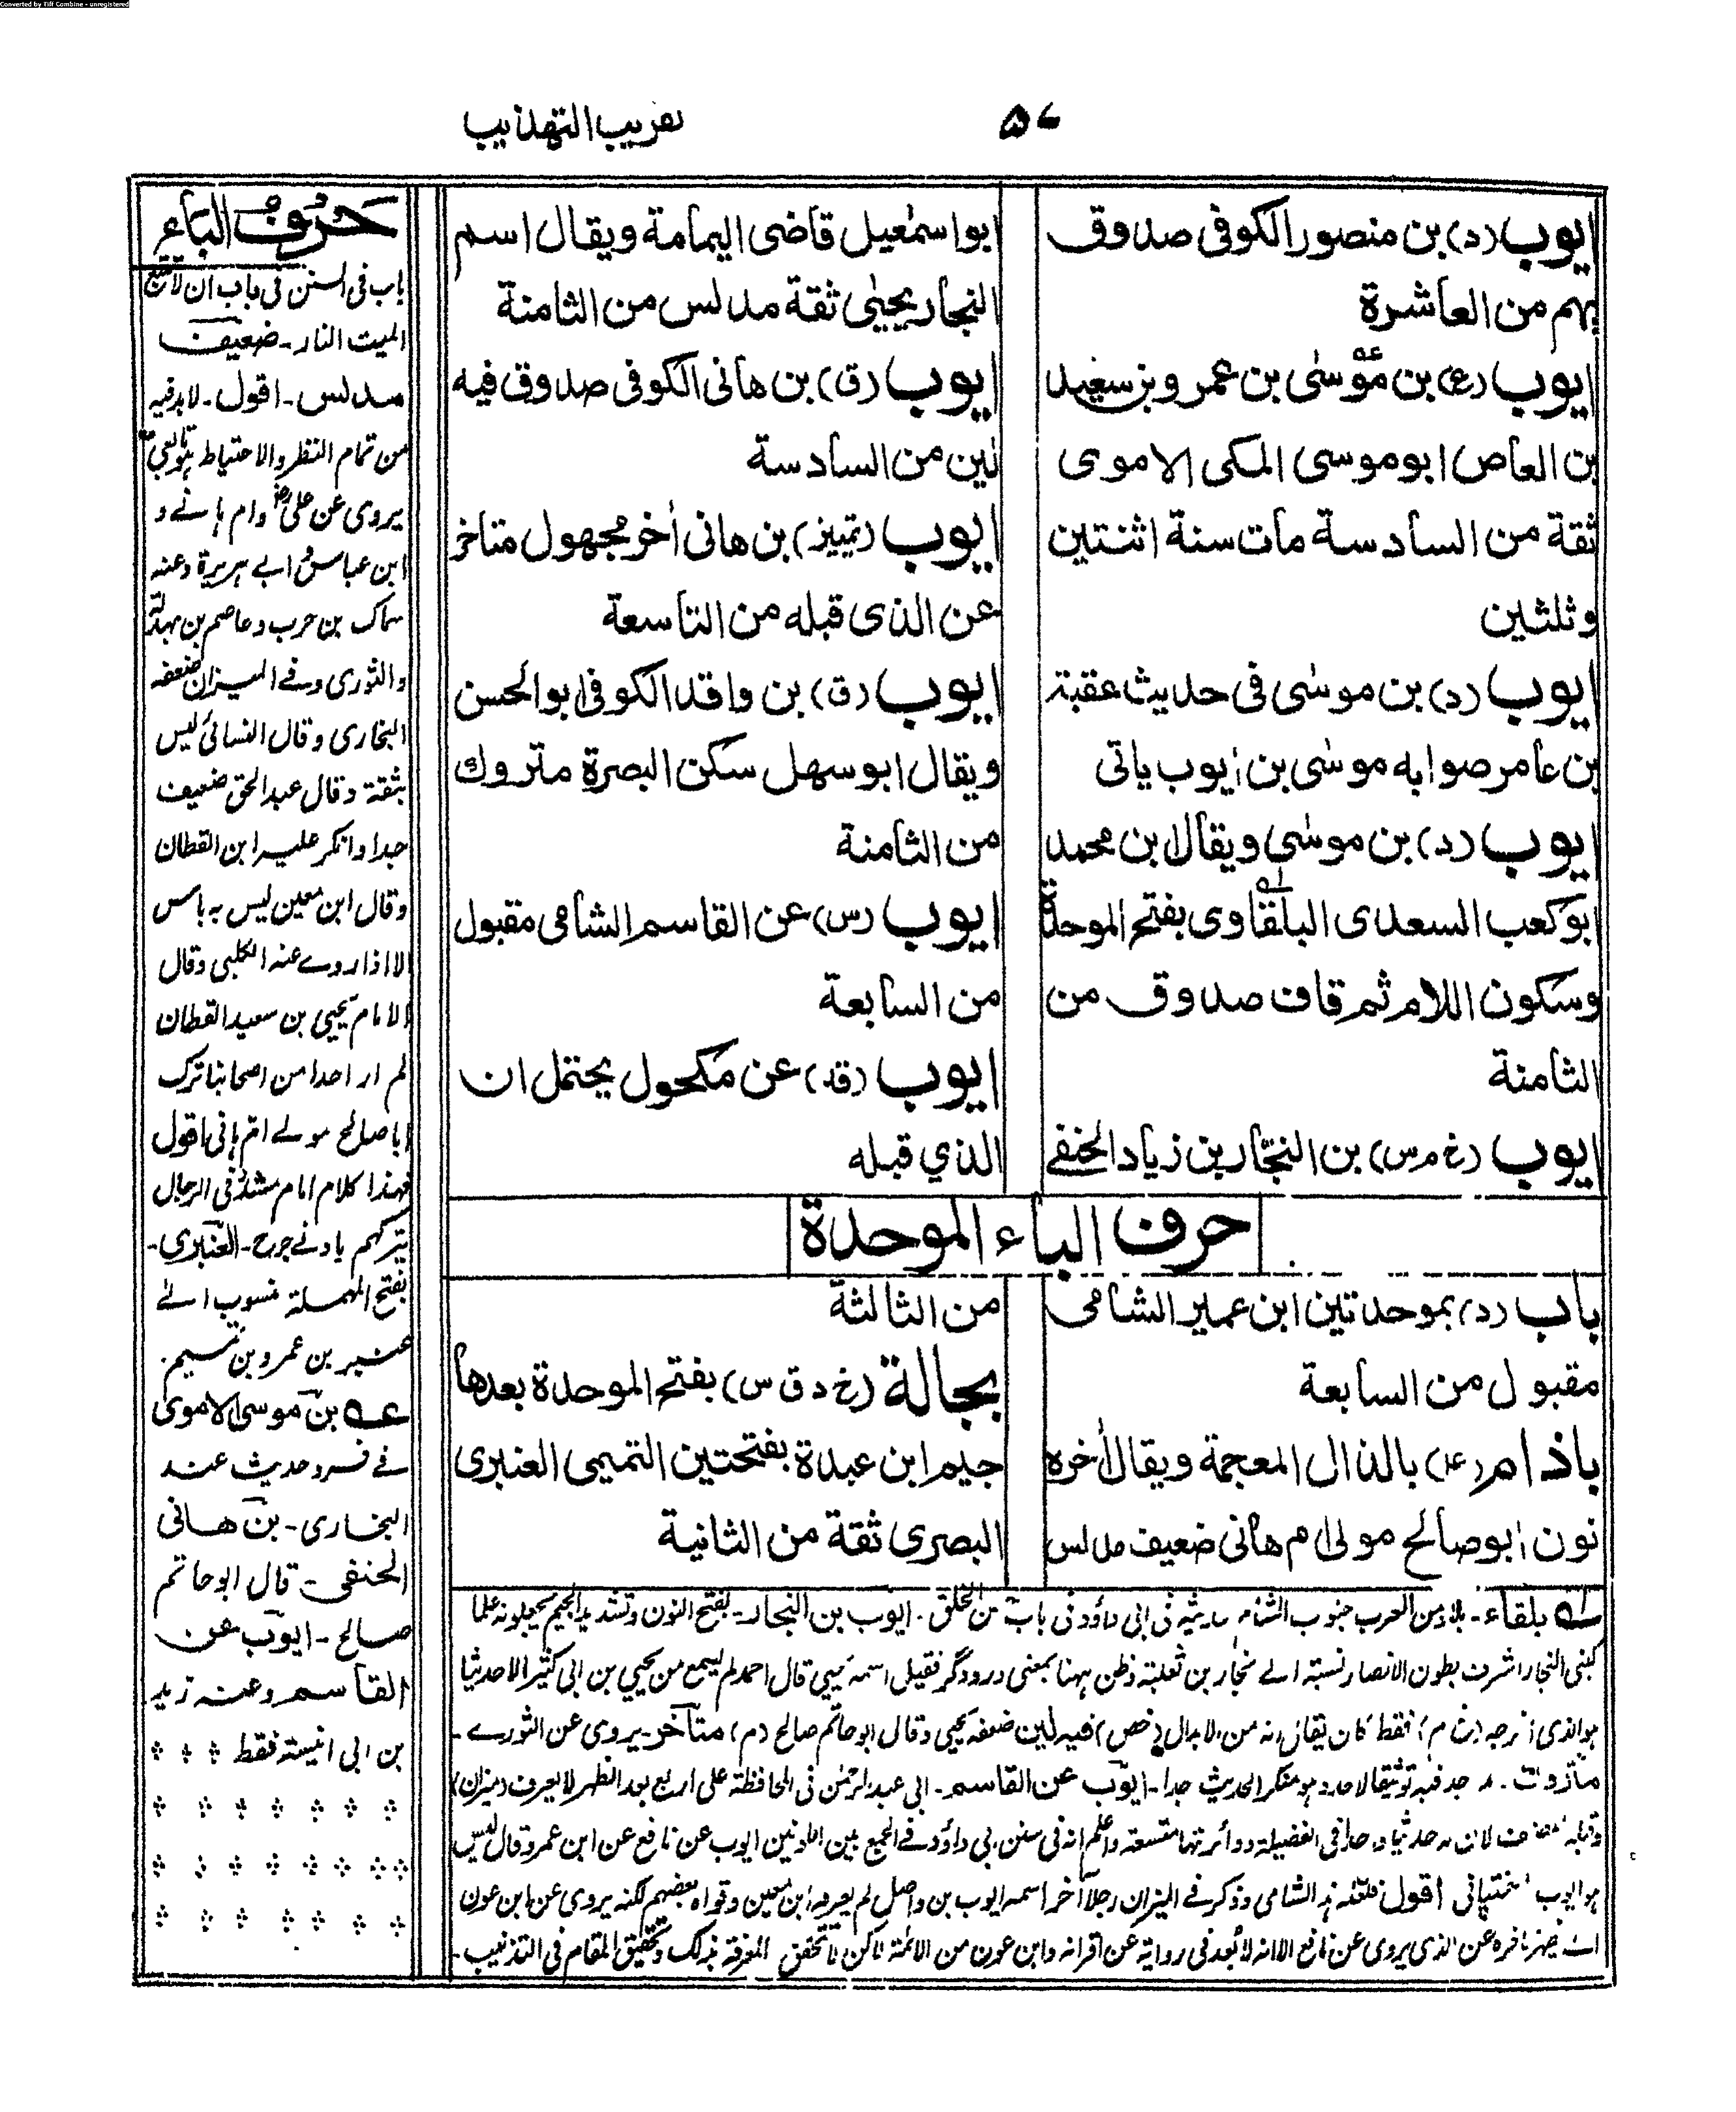 Converted by Tiff Combine - unregistered
۵۷
تقريب التهذيب
ايوب (د) بن منصور الكوفى صدوق
يهم من العاشرة
ايوب (ع) بن موسٰى بن عمرو بن سعيد
بن العاص ابو موسى المكى الاموى
ثقة من السادسة مات سنة اثنتين
وثلثين
ايوب (د) بن موسٰى فى حديث عقبة
بن عامر صوابه موسٰى بن ايوب ياتى
ايوب (د) بن موسٰى ويقال ابن محمد
ابو كعب السعدى البلقاوى بفتح الموحدة
وسكون اللام ثم قاف صدوق من
الثامنة
ايوب (خ م س) بن النجّار بن زياد الحنفى
ابو اسمٰعيل قاضى اليمامة ويقال اسم
النجار يحيٰى ثقة مدلس من الثامنة
ايوب (ق) بن هانى الكوفى صدوق فيه
لين من السادسة
ايوب (تمييز) بن هانى أخر مجهول متاخر
عن الذى قبله من التاسعة
ايوب (ق) بن واقد الكوفى ابو الحسن
ويقال ابو سهل سكن البصرة متروك
من الثامنة
ايوب (س) عن القاسم الشامى مقبول
من السابعة
ايوب (قد) عن مكحول يحتمل ان
الذي قبله
حرف الباء الموحدة
باب (د) بموحدتين ابن عمير الشامى
مقبول من السابعة
باذام (ع) بالذال المعجمة ويقال أخره
نون ابو صالح مولى ام هانى ضعيف مدلس
من الثالثة
بجالة (خ د ق س) بفتح الموحدة بعدها
جيم ابن عبدة بفتحتين التميمى العنبرى
البصرى ثقة من الثانية
حرف الباء
باب فى السنن فى باب ان لا تتبع
الميت النار - ضعيف
مدلس - اقول - لا بد فيه
من تمام النظر والاحتياط
يروى عن على وام هانے و
ابن عباس وابے هريرة وعنه
سماك بن حرب وعاصم بن بهدلة
والثورى وفے الميزان ضعفه
البخارى وقال النسائى ليس
بثقة وقال عبد الحق ضعيف
جدا وانكر عليه ابن القطان
وقال ابن معين ليس به باس
الا اذا روے عنه الكلبى وقال
الامام يحيى بن سعيد القطان
لم ار احدا من اصحابنا ترك
ابا صالح مولے ام هانى اقول
فهذا كلام امام مشدد فى الرجال
يتركهم بادنے جرح - العنبرى -
بفتح المهملة منسوب الے
عنبر بن عمرو بن تميم
عه بن موسى الاموى
فے فرد حديث عند
البخارى - بن هانى
الحنفى - قال ابو حاتم
صالح - ايوب عن
القاسم وعنه زيد
بن ابى انيسة فقط
له بلقاء - بلاد من العرب جنوب الشام حديثه فى ابى داؤد فى باب من الخلق - ايوب بن النجار - بفتح النون وتشديد الجيم يجعلونه علما
كبنى النجار اشرف بطون الانصار نسبة الے نجار بن ثعلبة وظن ههنا بمعنى درودگر فقيل اسمه يحيى قال احمد لم يسمع من يحيى بن ابى كثير الا حديثا
هو الذى اخرجه (خ م) فقط كان يقال انه من الابدال (خص) فيه لين ضعفه يحيى وقال ابو حاتم صالح (م) متاخر - يروى عن الثورے -
متروك - جد فيه توثيقا لاحد وهو منكر الحديث جدا - ايوب عن القاسم - ابى عبد الرحمٰن فى المحافظة على اربع بعد الظهر لا يعرف (ميزان)
فى الفضيلة ودائرتها متسعة واعلم انه فى سنن ابى داؤد فے الجمع بين ايوب عن نافع عن ابن عمر وقال ليس
هو ايوب السختيانى اقول فلعله هذا الشامى وذكر فے الميزان رجلا آخر اسمه ايوب بن واصل لم يعرفه ابن معين وقواه بعضهم لكنه يروى عن ابن عون
الذى يروى عن نافع الا انه لا بُعد فى رواية عن اقرانه وابن عون من الائمة لكن لا تحقق المعرفة بذلك وتحقيق المقام فى التذنيب -